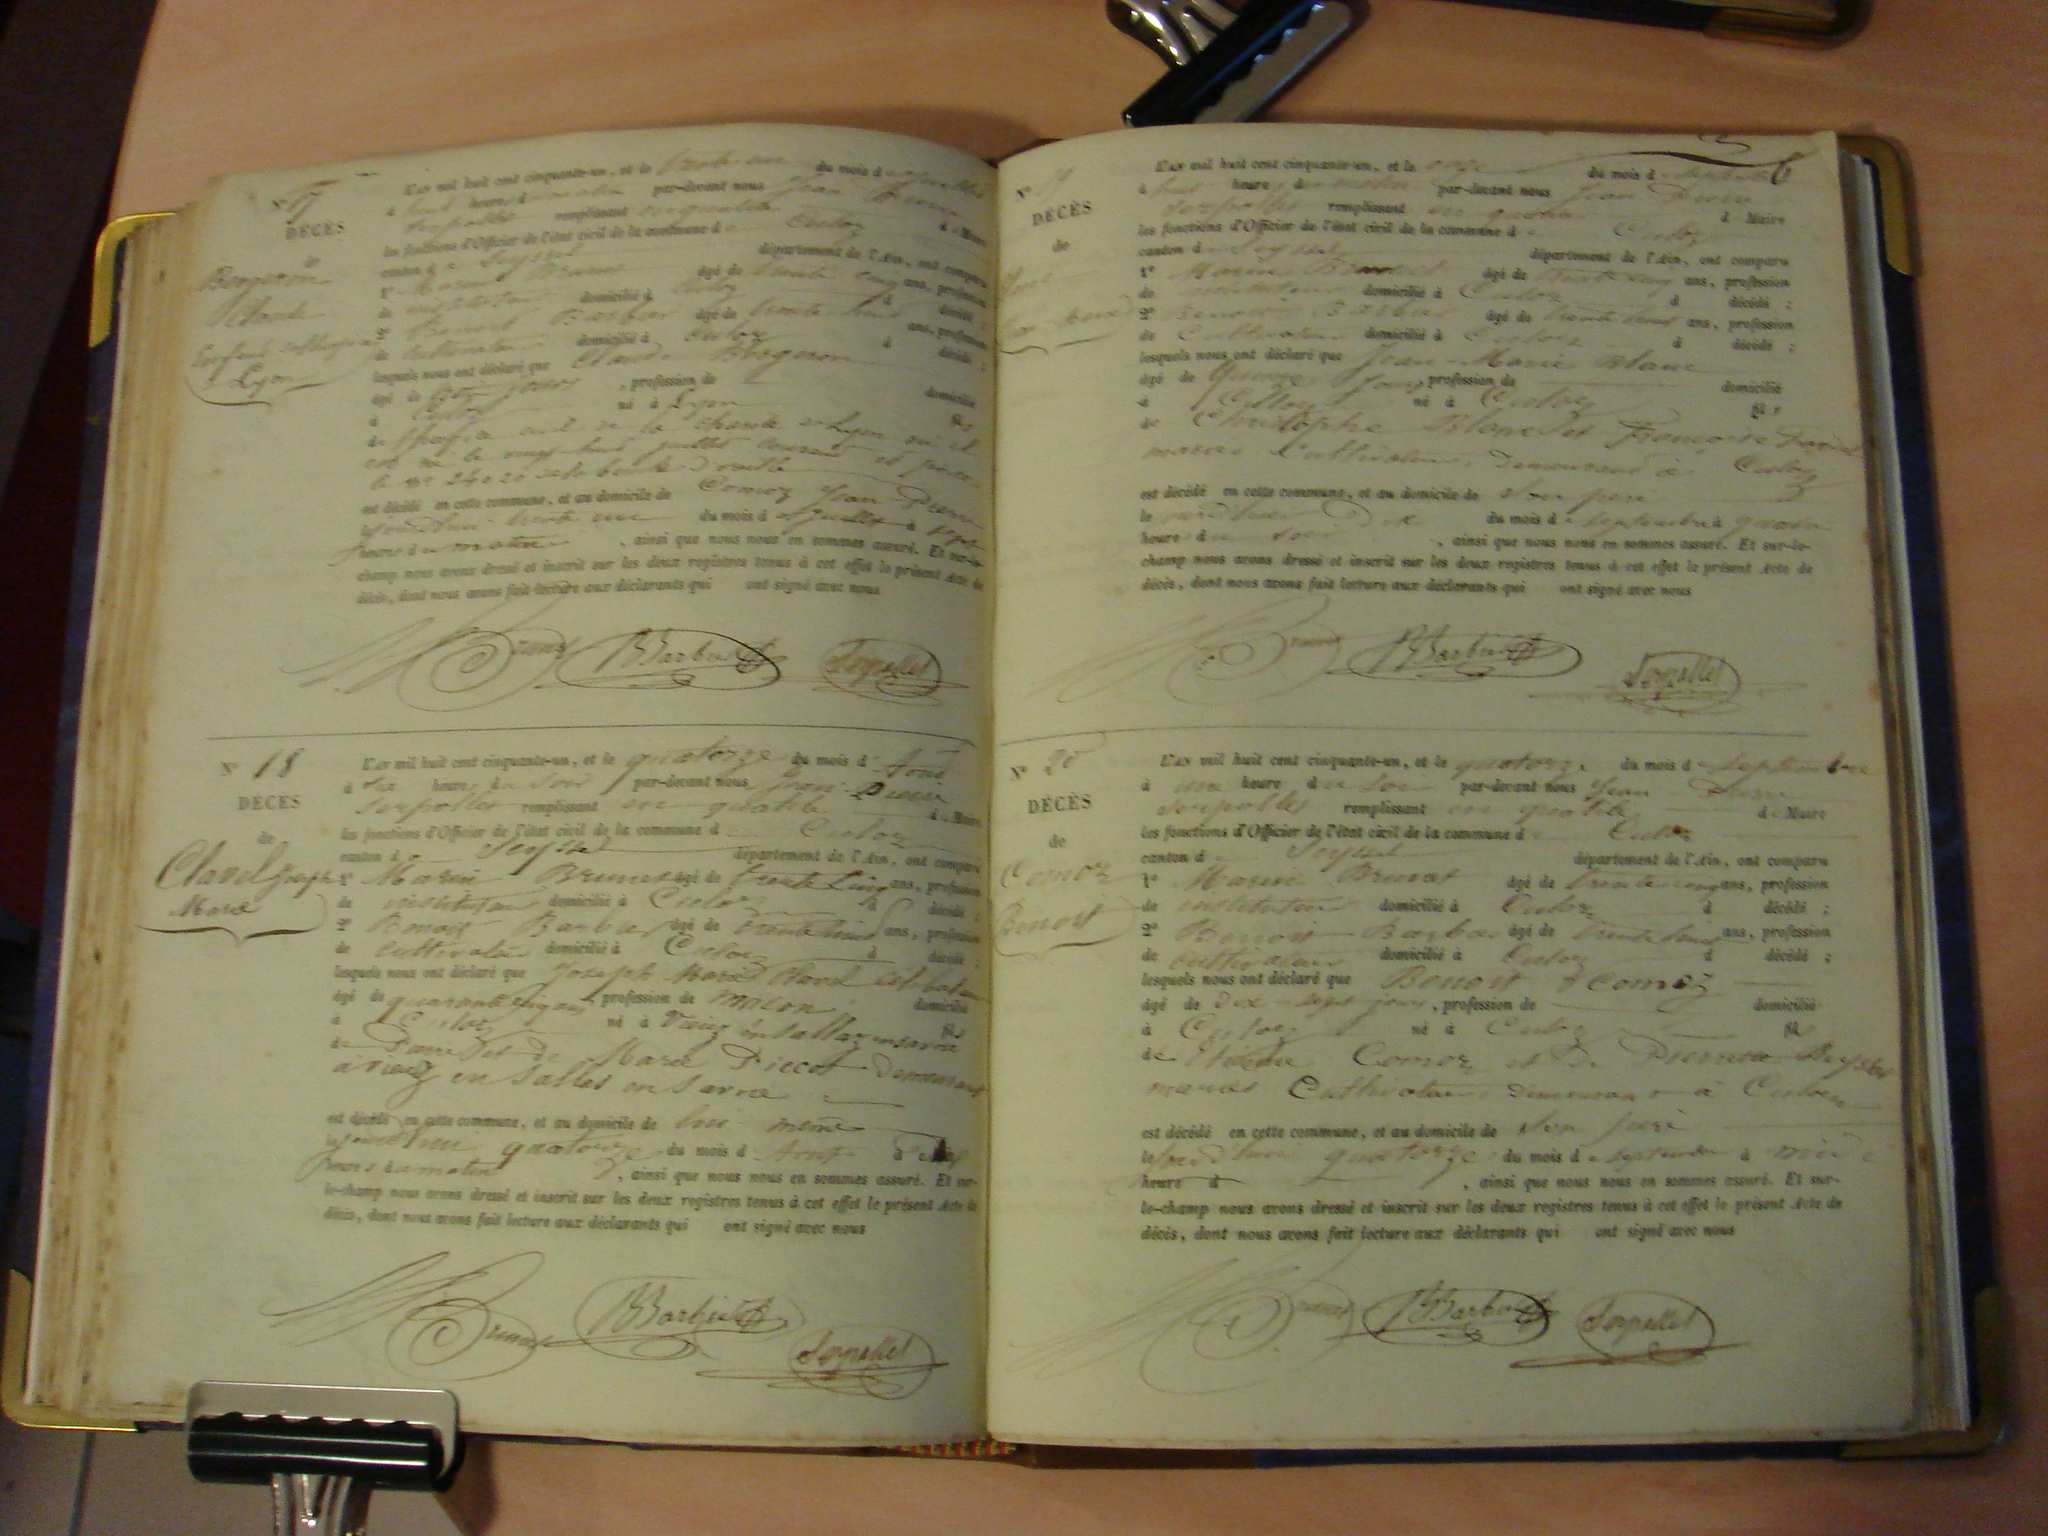 N° 17
DÉCÈS
de
Bergeron
Claude
Lyon
L'AN mil huit cent cinquante-un, et le trente un du mois de juillet
à huit heures du matin par-devant nous Jean Pierre
Serpollet remplissant en qualité de Maire
les fonctions d'Officier de l'état civil de la commune de Culoz
canton de Seyssel département de l'Ain, ont comparu
1° Marin Brunet âgé de trente cinq ans, profession
de instituteur domicilié à Culoz d décédé ;
2° Benoit Barbier âgé de trente ans, profession
de cultivateur domicilié à Culoz d décédé ;
lesquels nous ont déclaré que Claude Bergeron
âgé de jours , profession de domicilié
à Culoz né à Lyon fils
de la charité de Lyon
est né le vingt huit juillet courant et
est décédé en cette commune, et au domicile de Comoz Jean Pierre
le jourdhui trente un du mois de juillet à sept
heures du matin , ainsi que nous nous en sommes assuré. Et sur-le-
champ nous avons dressé et inscrit sur les deux registres tenus à cet effet le présent Acte de
décès, dont nous avons fait lecture aux déclarants qui ont signé avec nous
Brunet BBarbier Serpollet
N° 18
DÉCÈS
de
Clavel Joseph
Marie
L'AN mil huit cent cinquante-un, et le quatorze du mois d'Aout
à six heures du soir par-devant nous Jean Pierre
Serpollet remplissant en qualité de Maire
les fonctions d'Officier de l'état civil de la commune de Culoz
canton de Seyssel département de l'Ain, ont comparu
1° Marin Brunet âgé de trente cinq ans, profession
de instituteur domicilié à Culoz d décédé ;
2° Benoit Barbier âgé de trente ans, profession
de cultivateur domicilié à Culoz d décédé ;
lesquels nous ont déclaré que Joseph Marie Clavel celibataire
âgé de quarante cinq ans profession de maçon domicilié
à Culoz né à en sallaz en savoie fils
de et de Marie demeurant
à en Salles en Savoie
est décédé en cette commune, et au domicile de lui même
le jourdhui quatorze du mois d Aout à
heures du matin , ainsi que nous nous en sommes assuré. Et sur-
le-champ nous avons dressé et inscrit sur les deux registres tenus à cet effet le présent Acte de
décès, dont nous avons fait lecture aux déclarants qui ont signé avec nous
Brunet BBarbier Serpollet
6
N° 19
DÉCÈS
de
L'AN mil huit cent cinquante-un, et le onze du mois de septembre
à huit heure du matin par-devant nous Jean Pierre
Serpollet remplissant en qualité de Maire
les fonctions d'Officier de l'état civil de la commune de Culoz
canton de Seyssel département de l'Ain, ont comparu
1° Marin Brunet âgé de trente cinq ans, profession
de instituteur domicilié à Culoz d décédé ;
2° Benoit Barbier âgé de trente ans, profession
de Cultivateur domicilié à Culoz d décédé ;
lesquels nous ont déclaré que Jean-Marie Blanc
âgé de Quinze Jours profession de domicilié
à Culoz né à Culoz fils
de Christophe Blanc et Françoise
mariés Cultivateurs demeurant à Culoz
est décédé en cette commune, et au domicile de son père
le dix du mois de septembre à quatre
heures du soir , ainsi que nous nous en sommes assuré. Et sur-le-
champ nous avons dressé et inscrit sur les deux registres tenus à cet effet le présent Acte de
décès, dont nous avons fait lecture aux déclarants qui ont signé avec nous
Brunet BBarbier Serpollet
N° 20
DÉCÈS
de
Comoz
Benoit
L'AN mil huit cent cinquante-un, et le quatorze du mois de septembre
à une heure du soir par-devant nous Jean Pierre
Serpollet remplissant en qualité de Maire
les fonctions d'Officier de l'état civil de la commune de Culoz
canton de Seyssel département de l'Ain, ont comparu
1° Marin Brunet âgé de trente cinq ans, profession
de instituteur domicilié à Culoz d décédé ;
2° Benoit Barbier âgé de trente ans, profession
de cultivateur domicilié à Culoz d décédé ;
lesquels nous ont déclaré que Benoit Comoz
âgé de dix-sept jours , profession de domicilié
à Culoz né à Culoz fils
de Comoz et de Pierrette
mariés Cultivateurs demeurant à Culoz
est décédé en cette commune, et au domicile de son père
le jourdhui quatorze du mois de septembre à midi
heure d , ainsi que nous nous en sommes assuré. Et sur-
le-champ nous avons dressé et inscrit sur les deux registres tenus à cet effet le présent Acte de
décès, dont nous avons fait lecture aux déclarants qui ont signé avec nous
Brunet BBarbier Serpollet